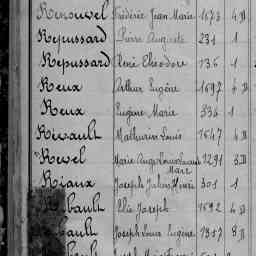 Renouvel Frédéric Jean Marie 1673 4 D
Repussard Pierre Auguste 231 1
Repussard René Eliodore 736 1
Reux Arthur Eugène 1697 4 D
Reux Eugène Marie 336 1
Revault Mathurin Louis 1647 4 D
Revel Marie Ange Louis Laurent 2291 3 D
Marc
Riaux Joseph Jules Henri 301 1
bault Elie Joseph 1692 4 D
bault Joseph Louis Eugène 1957 8 D
bault